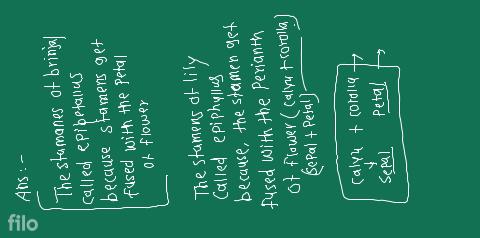 Ans:-
The stamanes of brinjal
called epipetallus
because stamens get
fused with the petal
of flower
The stamens of lily
called epiphyllus
because, the stamen get
fused with the Perianth
of flower (calyx + corolla)
Sepal + Petal)
calyx + corolla →
Sepal Petal →
filo